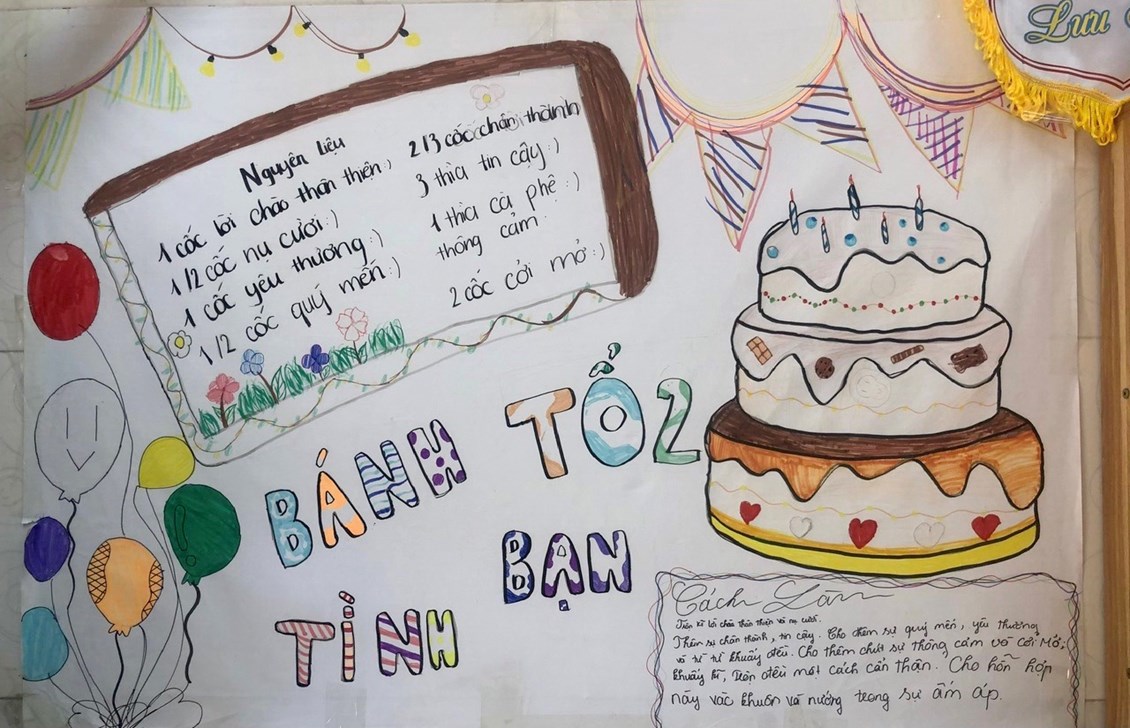 Lưu
Nguyên liệu
1 cốc lời chào thân thiện :)
1/2 cốc nụ cười :)
1 cốc yêu thương :)
1/2 cốc quý mến :)
2/3 cốc chân thành
3 thìa tin cậy :)
1 thìa cà phê :)
thông cảm
2 cốc cởi mở :)
BÁNH TỐ2
TÌNH BẠN
Cách Làm
Trộn kĩ lời chào thân thiện và nụ cười.
Thêm sự chân thành, tin cậy. Cho thêm sự quý mến, yêu thương
và từ từ khuấy đều. Cho thêm chút sự thông cảm và cởi mở,
khuấy kĩ, trộn đều một cách cẩn thận. Cho hỗn hợp
này vào khuôn và nướng trong sự ấm áp.